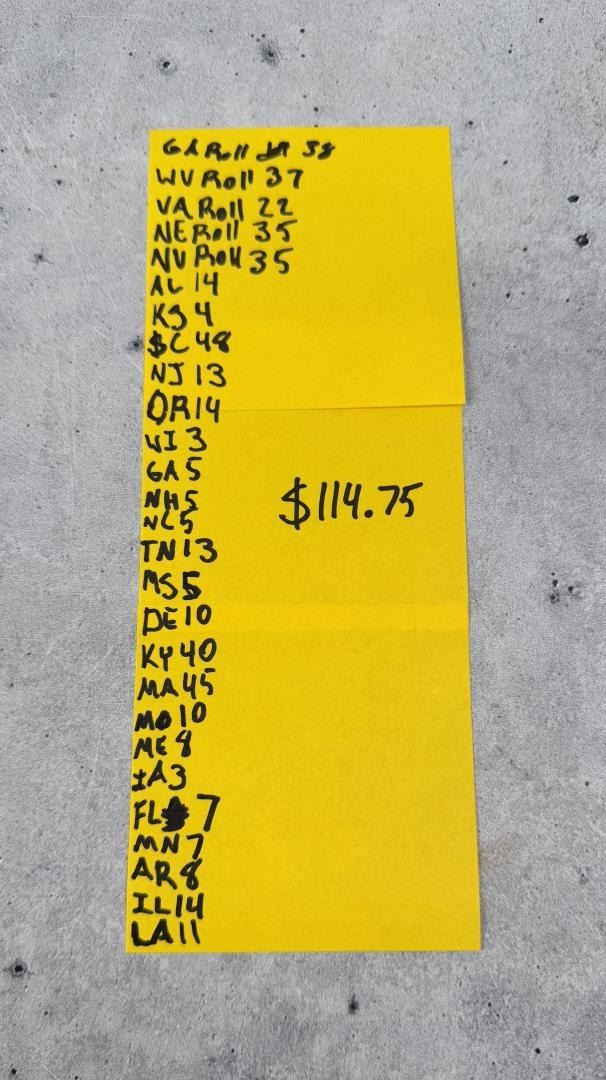 GA Roll 38
WV Roll 37
VA Roll 22
NE Roll 35
NV Roll 35
AL 14
KS 4
SC 48
NJ 13
OR 14
WI 3
GA 5
NH 5
NC 5
$114.75
TN 13
MS 5
DE 10
KY 40
MA 45
MO 10
ME 8
IA 3
FL 7
MN 7
AR 8
IL 14
LA 11